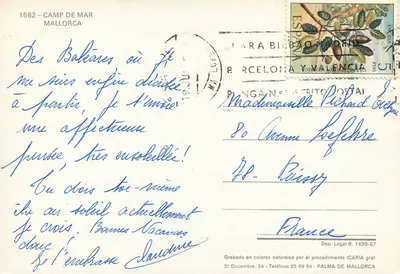 1582 – CAMP DE MAR
MALLORCA
Des Baléares où je
me suis enfin décidée
à partir, je t'envoie
une affectueuse
pensée, très ensoleillée!
Tu dois toi-même
être au soleil actuellement
je crois. Bonnes Vacances
donc!
Je t'embrasse
ESPAÑA
PARA BILBAO MADRID
BARCELONA Y VALENCIA
PONGA Nº DISTRITO POSTAL
Mademoiselle Pichard
80 Avenue Lefebvre
78- Poissy
France
Dep. Legal B. 1499-67
Grabado en colores naturales por el procedimiento ICARIA graf
31 Diciembre, 24 - Teléfono 25 49 64 - PALMA DE MALLORCA